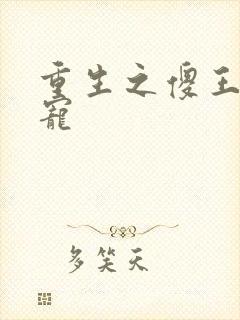 重生之傻王
寵
多笑天